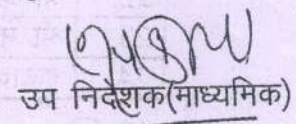 उप निदेशक(माध्यमिक)